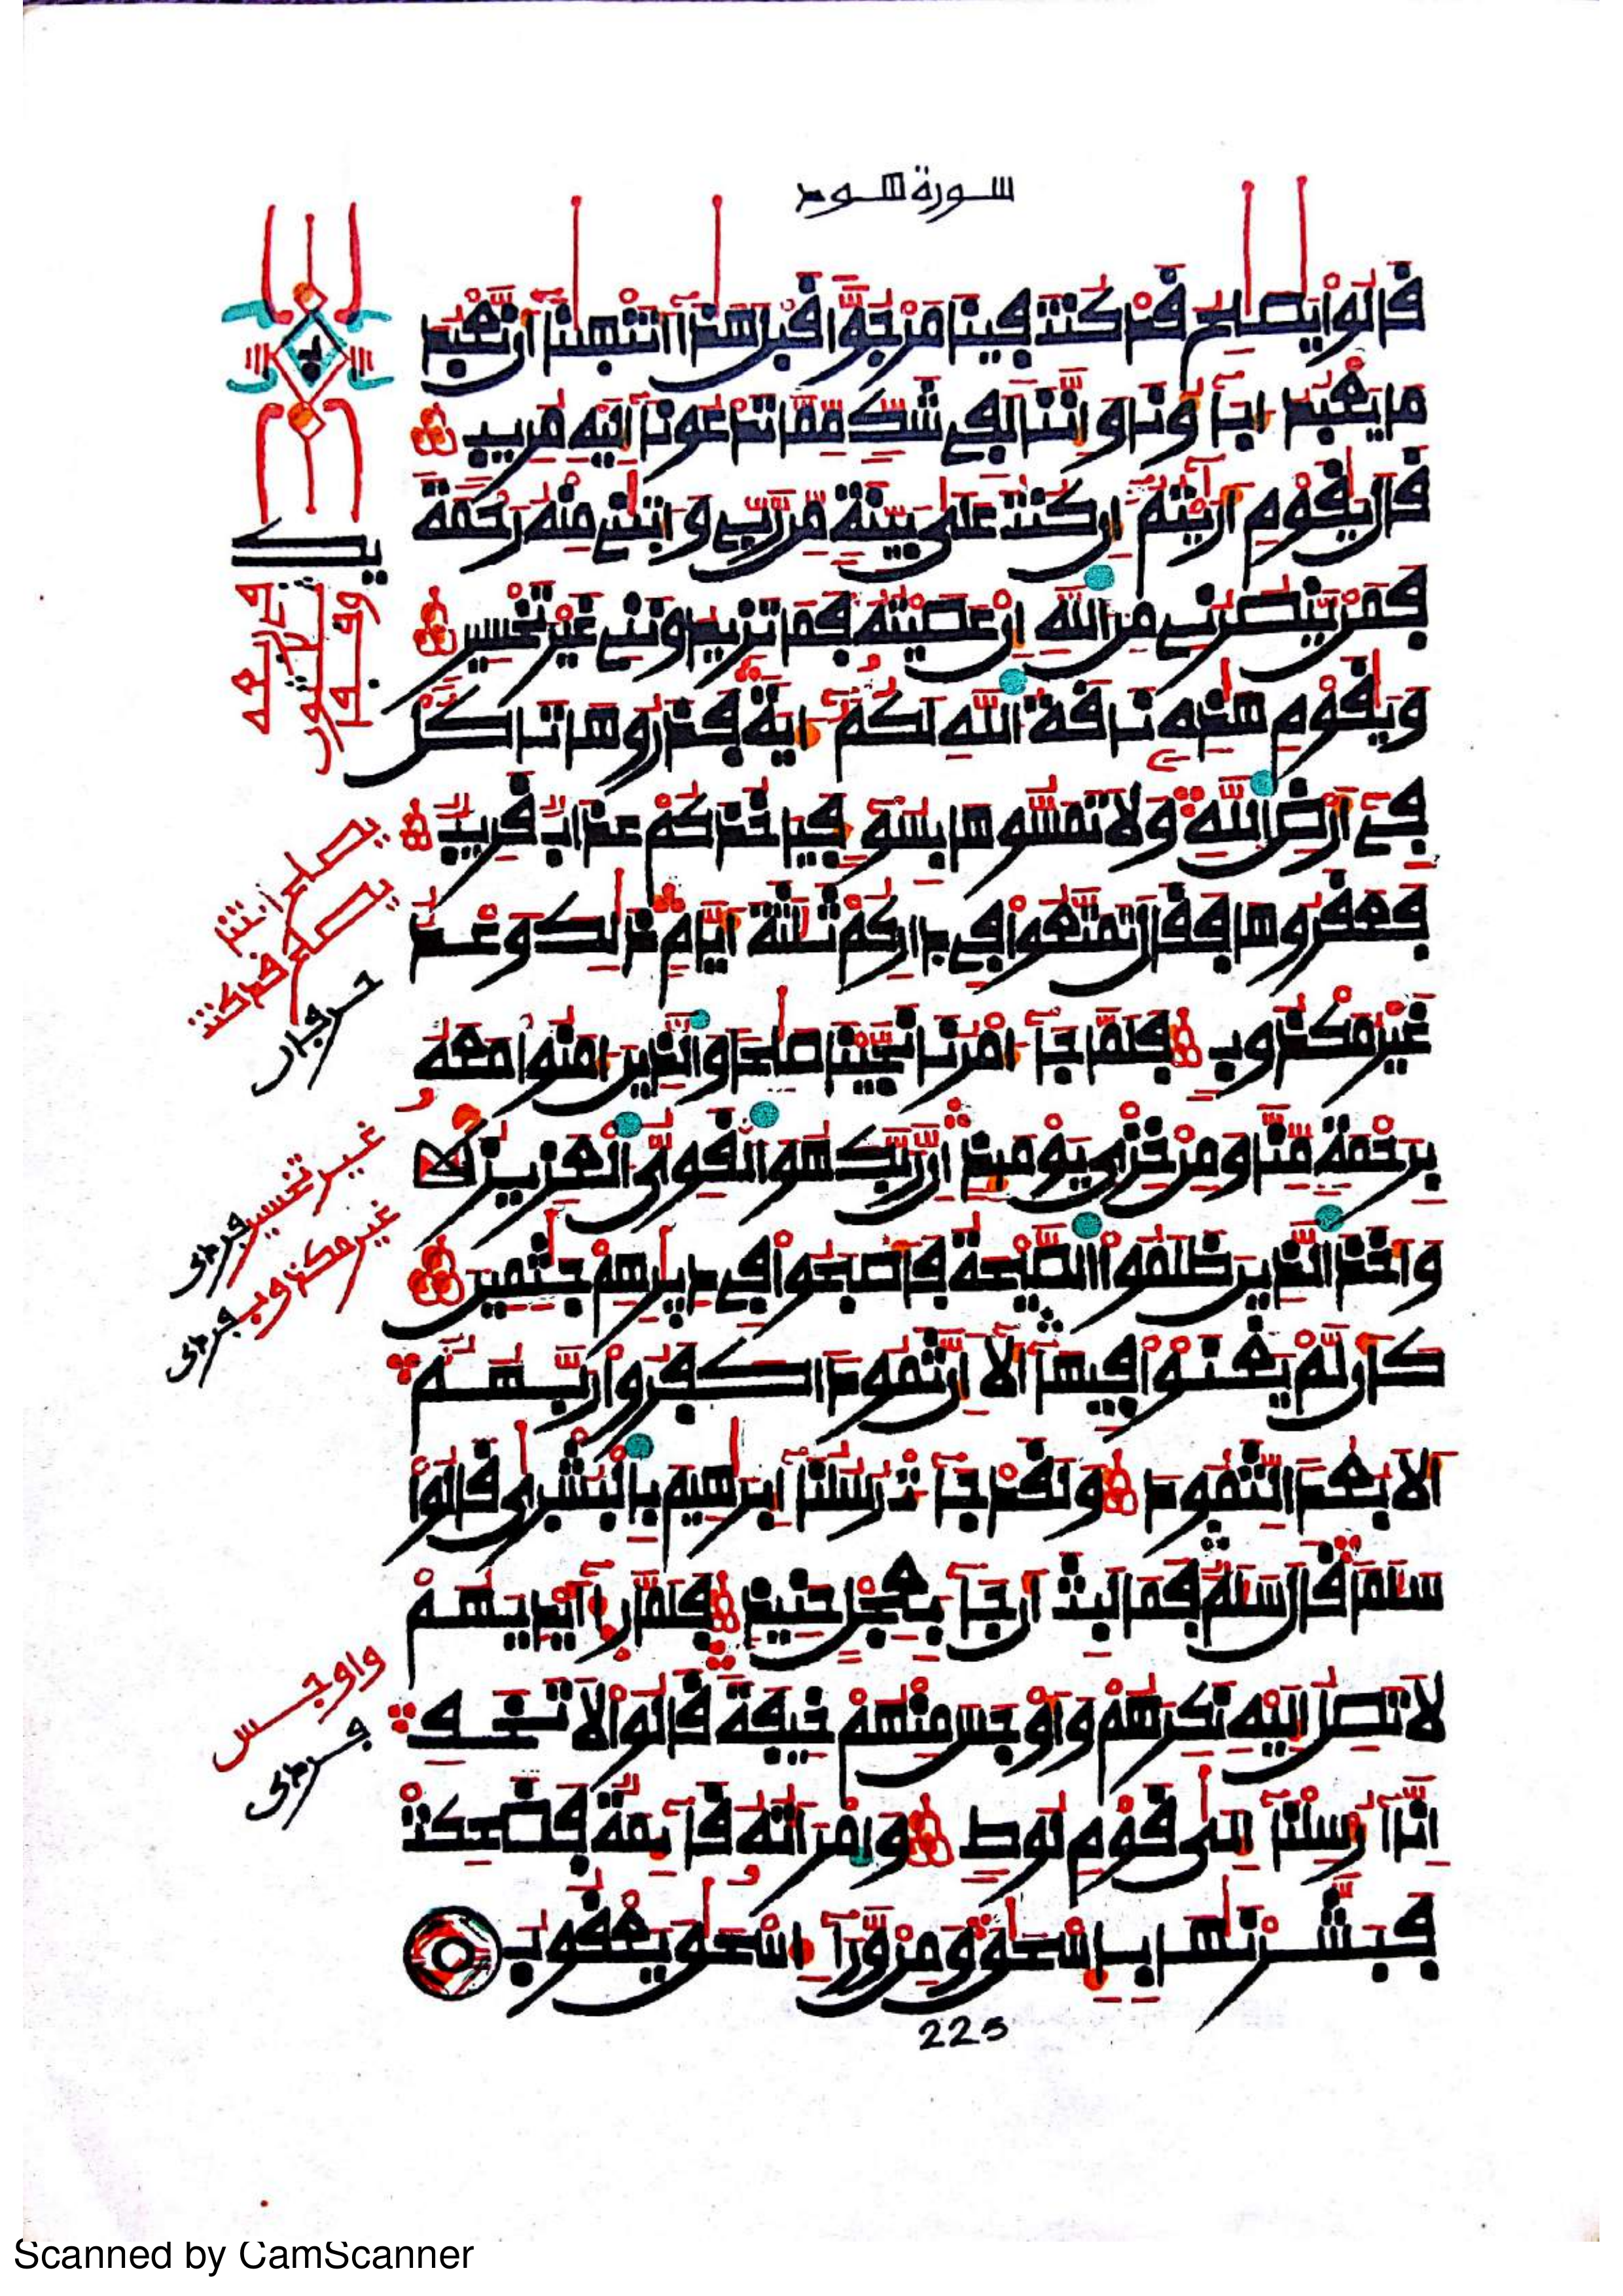 سورة هود
قَالُوا۟ يَٰصَٰلِحُ قَدْ كُنتَ فِينَا مَرْجُوًّا قَبْلَ هَٰذَآ أَتَنْهَىٰنَآ أَن نَّعْبُدَ
مَا يَعْبُدُ ءَابَآؤُنَا وَإِنَّنَا لَفِى شَكٍّ مِّمَّا تَدْعُونَآ إِلَيْهِ مُرِيبٍ
قَالَ يَٰقَوْمِ أَرَٰيْتُمْ إِن كُنتُ عَلَىٰ بَيِّنَةٍ مِّن رَّبِّى وَءَاتَىٰنِى مِنْهُ رَحْمَةً
فَمَنْ يَّنصُرُنِى مِنَ ٱللَّهِ إِنْ عَصَيْتُهُۥ فَمَا تَزِيدُونَنِى غَيْرَ تَخْسِيرٍ
وَيَٰقَوْمِ هَٰذِهِۦ نَاقَةُ ٱللَّهِ لَكُمُۥٓ ءَايَةً فَذَرُوهَا تَاكُلْ
فِىٓ أَرْضِ ٱللَّهِ وَلَا تَمَسُّوهَا بِسُوٓءٍ فَيَاخُذَكُمْ عَذَابٌ قَرِيبٌ
فَعَقَرُوهَا فَقَالَ تَمَتَّعُوا۟ فِى دَارِكُمْ ثَلَٰثَةَ أَيَّامٍ ذَٰلِكَ وَعْدٌ
غَيْرُ مَكْذُوبٍ فَلَمَّا جَآءَ امْرُنَا نَجَّيْنَا صَٰلِحًا وَٱلَّذِينَ ءَامَنُوا۟ مَعَهُۥ
بِرَحْمَةٍ مِّنَّا وَمِنْ خِزْىِ يَوْمَئِذٍ إِنَّ رَبَّكَ هُوَ ٱلْقَوِىُّ ٱلْعَزِيزُ
وَأَخَذَ ٱلَّذِينَ ظَلَمُوا۟ ٱلصَّيْحَةُ فَأَصْبَحُوا۟ فِى دِيَٰرِهِمْ جَٰثِمِينَ
كَأَن لَّمْ يَغْنَوْا۟ فِيهَآ أَلَآ إِنَّ ثَمُودًا كَفَرُوا۟ رَبَّهُمُۥٓ
أَلَا بُعْدًا لِّثَمُودَ وَلَقَدْ جَآءَتْ رُسُلُنَآ إِبْرَٰهِيمَ بِٱلْبُشْرَىٰ قَالُوا۟
سَلَٰمًا قَالَ سَلَٰمٌ فَمَا لَبِثَ أَن جَآءَ بِعِجْلٍ حَنِيذٍ فَلَمَّا رَءَآ أَيْدِيَهُمْ
لَا تَصِلُ إِلَيْهِ نَكِرَهُمْ وَأَوْجَسَ مِنْهُمْ خِيفَةً قَالُوا۟ لَا تَخَفِ
إِنَّآ أُرْسِلْنَآ إِلَىٰ قَوْمِ لُوطٍ وَامْرَأَتُهُۥ قَآئِمَةٌ فَضَحِكَتْ
فَبَشَّرْنَٰهَا بِإِسْحَٰقَ وَمِنْ وَّرَآءِ اسْحَٰقَ يَعْقُوبُ
225
يصلح اتنا
يصلح قد كنت
حرفان
غير تخسير
فردى
غير مكذوب
فردى
واوجس
فردى
Scanned by CamScanner